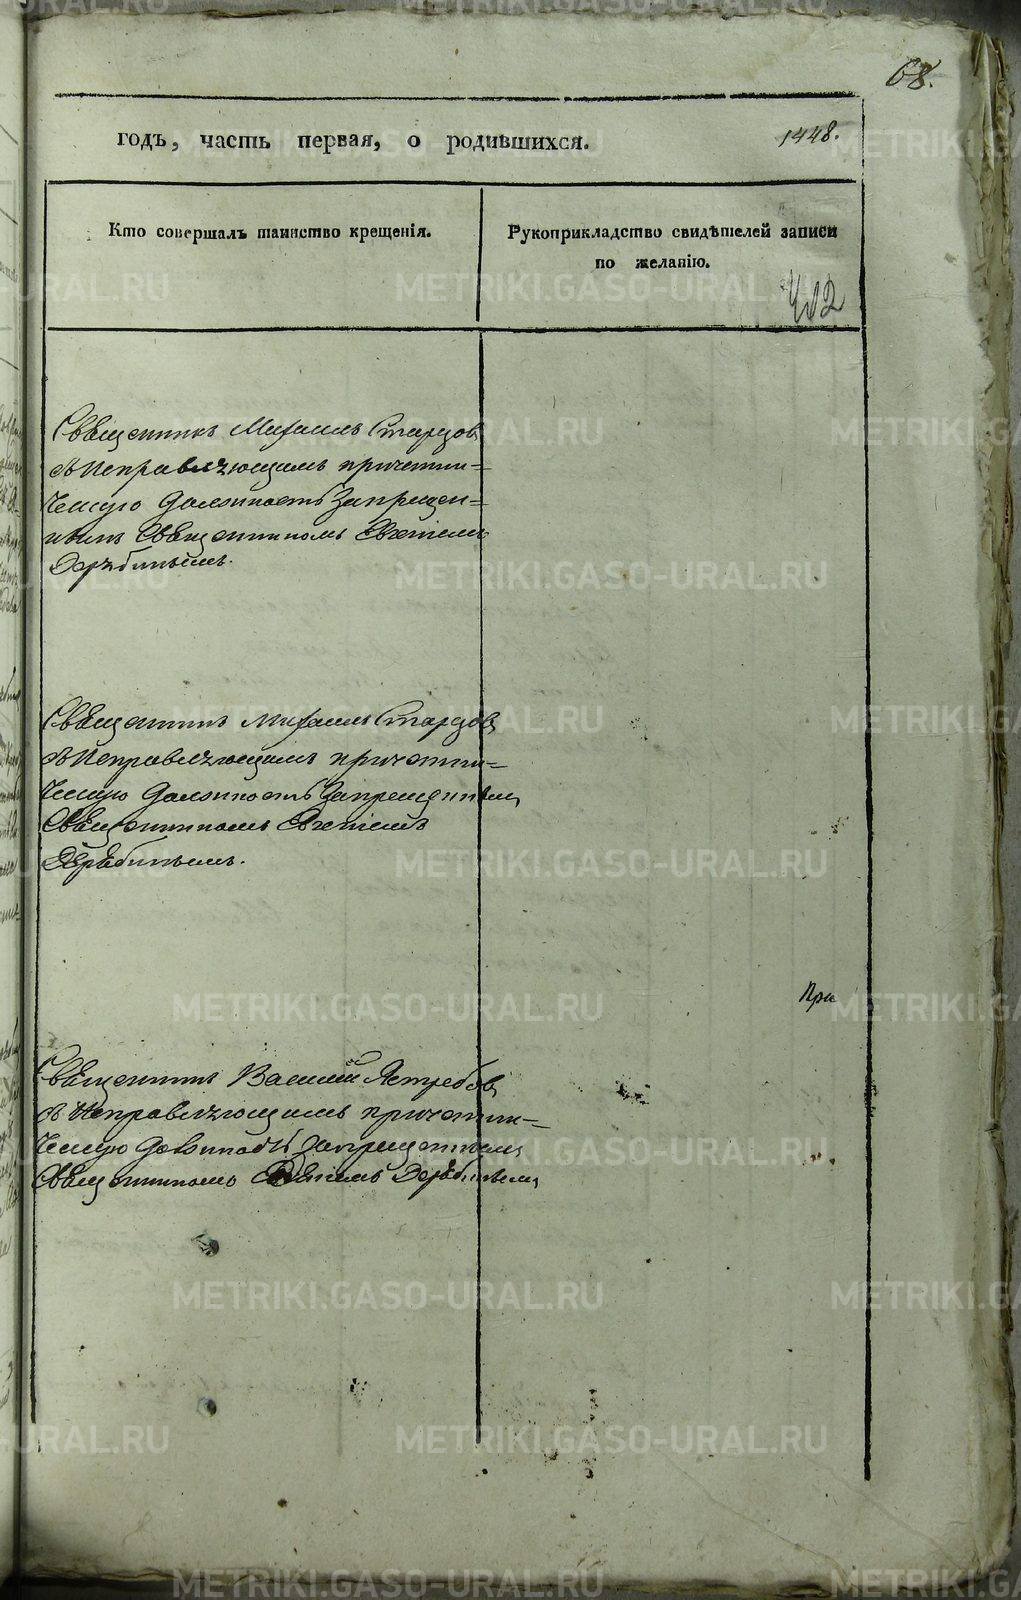 68.
годъ, часть первая, о родившихся.
1448.
Кто совершалъ таинство крещенія.
Рукоприкладство свидѣтелей записи
по желанію.
402
Священникъ Михаилъ Старцовъ
съ исправляющимъ причетни=
ческую должность запрещен=
нымъ Священникомъ Евгеніемъ
Дерябинымъ.
Священникъ Михаилъ Старцовъ
съ исправляющимъ причетни=
ческую должность запрещеннымъ
Священникомъ Евгеніемъ
Дерябинымъ.
При
Священникъ Василій Ястребовъ
съ исправляющимъ причетни=
ческую должность запрещеннымъ
Священникомъ Евгеніемъ Дерябинымъ
METRIKI.GASO-URAL.RU